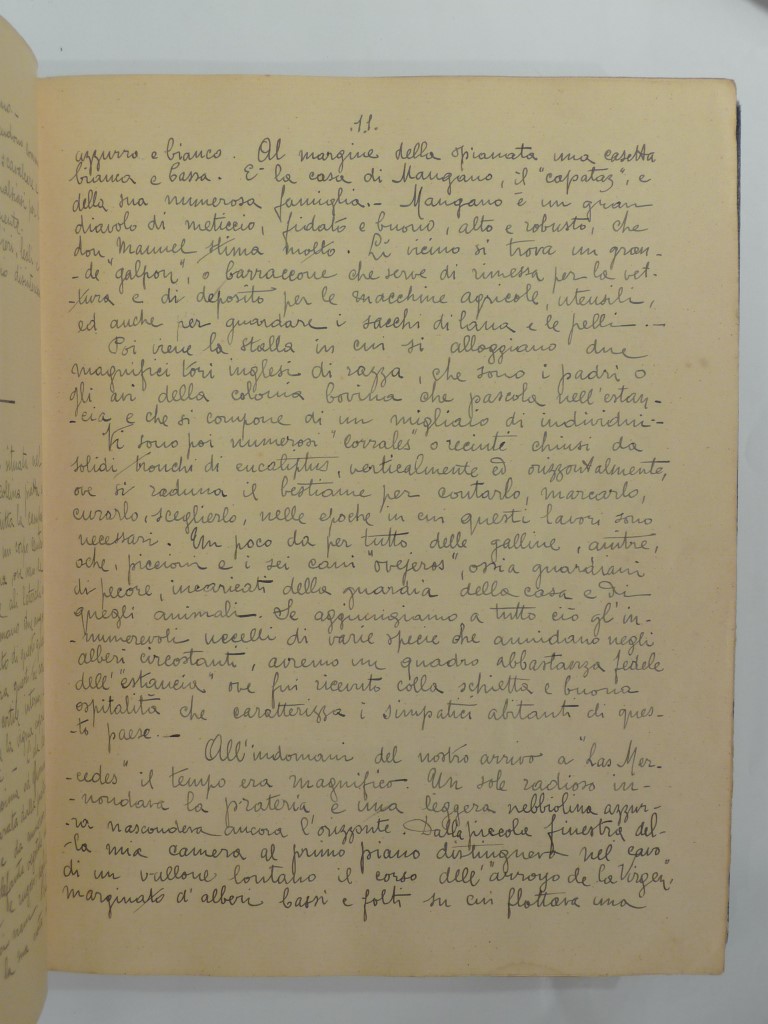 .11.
azzurro e bianco. Al margine della spianata una casetta
bianca e bassa. E' la casa di Mangano, il "capataz", e
della sua numerosa famiglia.- Mangano è un gran
diavolo di meticcio, fidato e buono, alto e robusto, che
don Manuel stima molto. Lì vicino si trova un gran-
-de "galpon", o barraccone che serve di rimessa per la vet-
-tura e di deposito per le macchine agricole, utensili,
ed anche per guardare i sacchi di lana e le pelli.-
Poi viene la stalla in cui si alloggiano due
magnifici tori inglesi di razza, che sono i padri o
gli avi della colonia bovina che pascola nell'estan-
-cia e che si compone di un migliaio di individui.-
Vi sono poi numerosi "corrales" o recinti chiusi da
solidi tronchi di eucaliptus, verticalmente ed orizzontalmente,
ove si raduna il bestiame per contarlo, marcarlo,
curarlo, sceglierlo, nelle epoche in cui questi lavori sono
necessari. Un poco da per tutto delle galline, anitre,
oche, piccioni e i sei cani "ovejeros", ossia guardiani
di pecore, incaricati della guardia della casa e di
quegli animali. Se aggiungiamo a tutto ciò gl'in-
-numerevoli uccelli di varie specie che annidano negli
alberi circostanti, avremo un quadro abbastanza fedele
dell'"estancia" ove fui ricevuto colla schietta e buona
ospitalità che caratterizza i simpatici abitanti di ques-
-to paese.-
All'indomani del nostro arrivo a "Las Mer-
-cedes" il tempo era magnifico. Un sole radioso in-
-nondava la prateria e una leggera nebbiolina azzur-
-ra nascondeva ancora l'orizzonte. Dalla piccola finestra del-
-la mia camera al primo piano distinguevo nel cavo
di un vallone lontano il corso dell'"arroyo de la Virgen",
marginato d'alberi bassi e folti su cui flottava una